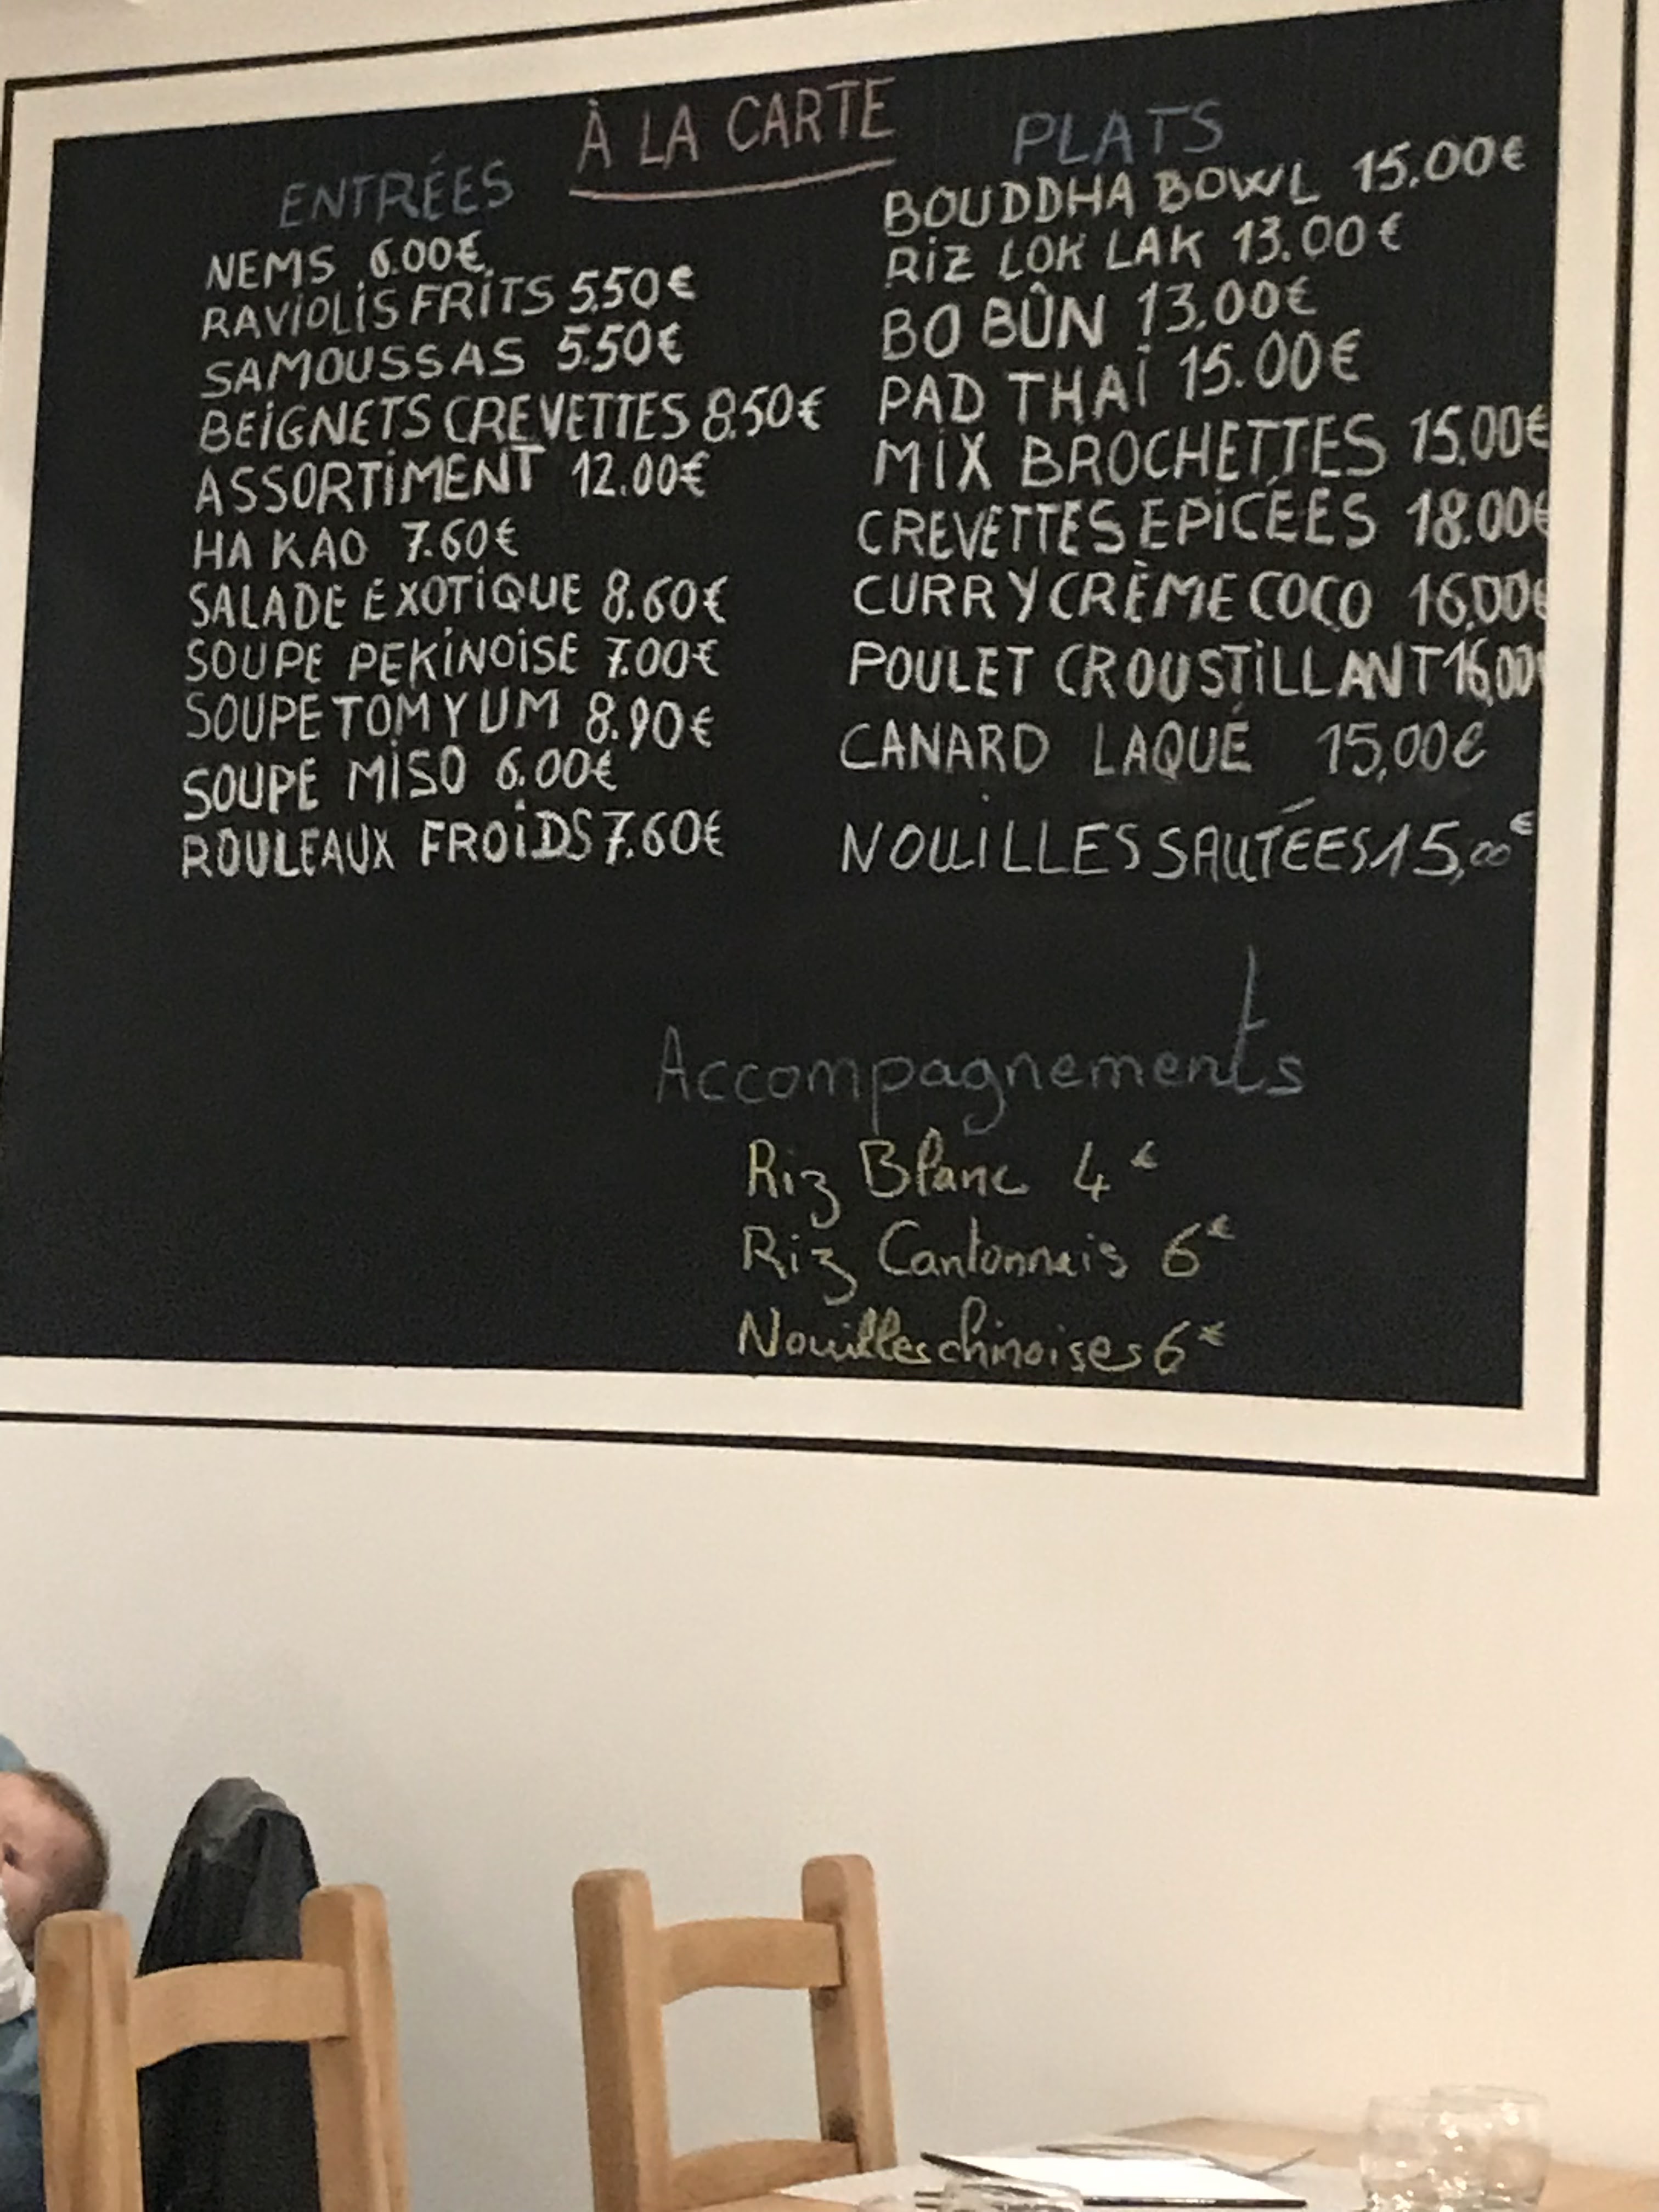 À LA CARTE
ENTRÉES
NEMS 6.00€
RAViOLiS FRiTS 5.50€
SAMOUSSAS 5.50€
BEiGNETS CREVETTES 8.50€
ASSORTiMENT 12.00€
HA KAO 7.60€
SALADE ÉXOTiQUE 8.60€
SOUPE PEKiNOiSE 7.00€
SOUPE TOM YUM 8.90€
SOUPE MiSO 6.00€
ROULEAUX FROiDS 7.60€
PLATS
BOUDDHA BOWL 15.00€
RiZ LOK LAK 13.00€
BO BÛN 13.00€
PAD THAÏ 15.00€
MiX BROCHETTES 15.00€
CREVETTES EPiCÉES 18.00€
CURRY CRÈME COCO 16.00€
POULET CROUSTiLLANT 16.00€
CANARD LAQUÉ 15,00€
NOUiLLES SAUTÉES 15,00€
Accompagnements
Riz Blanc 4€
Riz Cantonnais 6€
Nouilles chinoises 6€